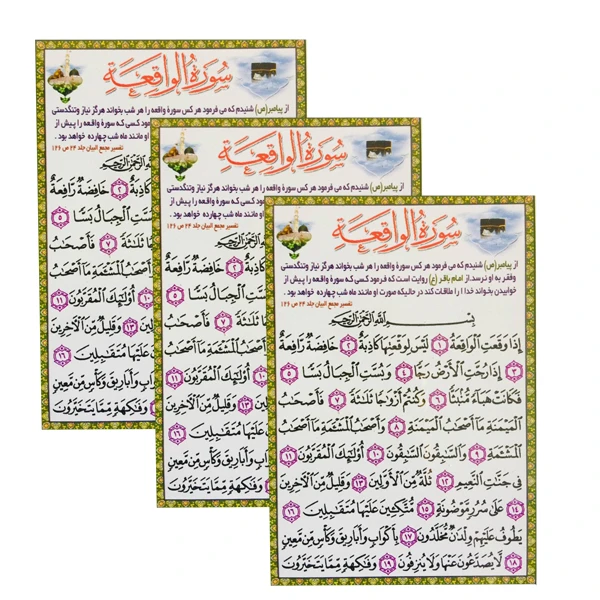 سُورَةُ الْوَاقِعَةِ
از پیامبر(ص) شنیدم که می فرمود هر کس سورهٔ واقعه را هر شب بخواند هرگز نیاز وتنگدستی
وفقر به او نرسد.از امام باقر (ع) روایت است که فرمود کسی که سوره واقعه را پیش از
خوابیدن بخواند خدا را ملاقات کند در حالیکه صورت او مانند ماه شب چهارده خواهد بود .
تفسیر مجمع البیان جلد ۲۴ ص ۱۲۶
بِسْمِ اللَّهِ الرَّحْمَٰنِ الرَّحِيمِ
إِذَا وَقَعَتِ الْوَاقِعَةُ ۱ لَيْسَ لِوَقْعَتِهَا كَاذِبَةٌ ۲ خَافِضَةٌ رَافِعَةٌ
۳ إِذَا رُجَّتِ الْأَرْضُ رَجًّا ۴ وَبُسَّتِ الْجِبَالُ بَسًّا ۵
فَكَانَتْ هَبَاءً مُنْبَثًّا ۶ وَكُنْتُمْ أَزْوَاجًا ثَلَاثَةً ۷ فَأَصْحَابُ
الْمَيْمَنَةِ مَا أَصْحَابُ الْمَيْمَنَةِ ۸ وَأَصْحَابُ الْمَشْئَمَةِ مَا أَصْحَابُ
الْمَشْئَمَةِ ۹ وَالسَّابِقُونَ السَّابِقُونَ ۱۰ أُولَٰئِكَ الْمُقَرَّبُونَ ۱۱
فِي جَنَّاتِ النَّعِيمِ ۱۲ ثُلَّةٌ مِنَ الْأَوَّلِينَ ۱۳ وَقَلِيلٌ مِنَ الْآخِرِينَ
۱۴ عَلَىٰ سُرُرٍ مَوْضُونَةٍ ۱۵ مُتَّكِئِينَ عَلَيْهَا مُتَقَابِلِينَ ۱۶
يَطُوفُ عَلَيْهِمْ وِلْدَانٌ مُخَلَّدُونَ ۱۷ بِأَكْوَابٍ وَأَبَارِيقَ وَكَأْسٍ مِنْ مَعِينٍ
۱۸ لَا يُصَدَّعُونَ عَنْهَا وَلَا يُنْزِفُونَ ۱۹ وَفَاكِهَةٍ مِمَّا يَتَخَيَّرُونَ